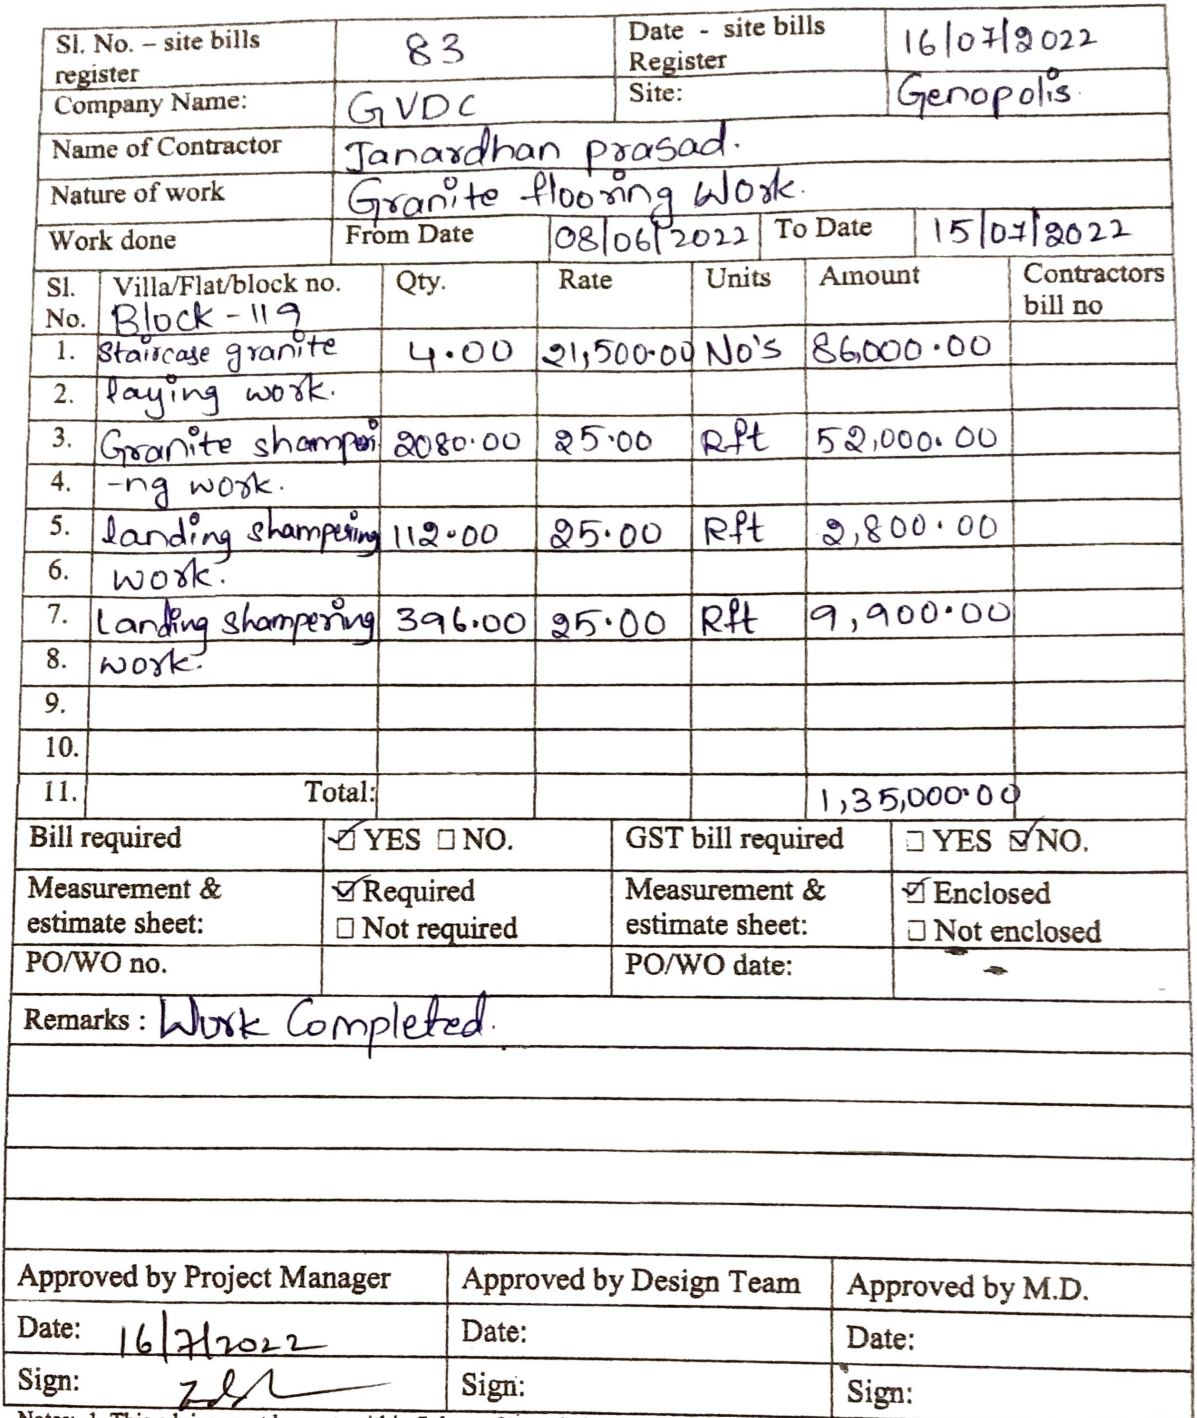 Sl. No. – site bills register 83 Date - site bills Register 16/07/2022
Company Name: GVDC Site: Genopolis.
Name of Contractor Janardhan prasad.
Nature of work Granite flooring Work.
Work done From Date 08/06/2022 To Date 15/07/2022
Sl. No. Villa/Flat/block no. Block - 119 Qty. Rate Units Amount Contractors bill no
1. Staircase granite 4.00 21,500.00 No's 86,000.00
2. laying work.
3. Granite shamperi 2080.00 25.00 Rft 52,000.00
4. -ng work.
5. landing shampering 112.00 25.00 Rft 2,800.00
6. work.
7. Landing shampering 396.00 25.00 Rft 9,900.00
8. work.
9.
10.
11. Total: 1,35,000.00
Bill required ☑ YES ☐ NO. GST bill required ☐ YES ☑ NO.
Measurement & estimate sheet: ☑ Required ☐ Not required Measurement & estimate sheet: ☑ Enclosed ☐ Not enclosed
PO/WO no. PO/WO date:
Remarks : Work Completed.
Approved by Project Manager Approved by Design Team Approved by M.D.
Date: 16/7/2022 Date: Date:
Sign: Sign: Sign: